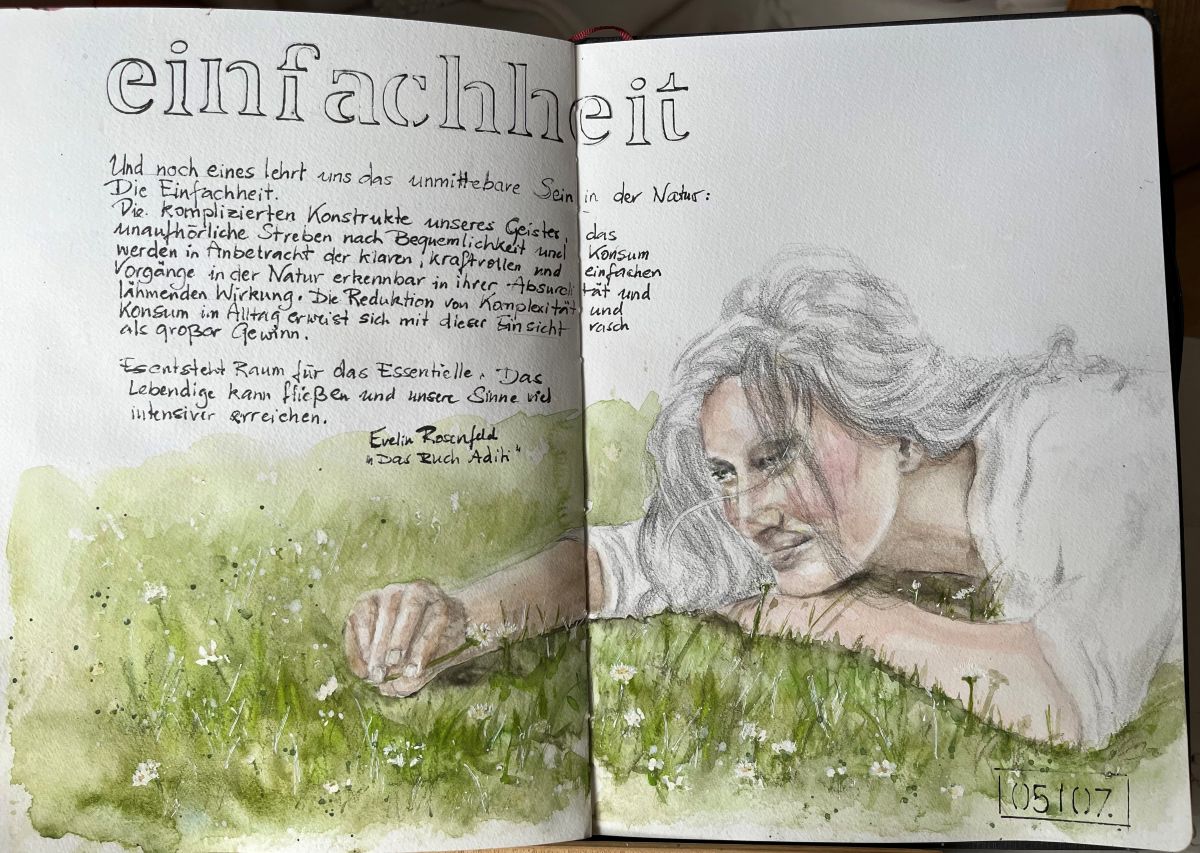 einfachheit
Und noch eines lehrt uns das unmittebare Sein in der Natur:
Die Einfachheit.
Die komplizierten Konstrukte unseres Geistes, das
unaufhörliche Streben nach Bequemlichkeit und Konsum
werden in Anbetracht der klaren, kraftvollen und einfachen
Vorgänge in der Natur erkennbar in ihrer Absurdität und
lähmenden Wirkung. Die Reduktion von Komplexität und
Konsum im Alltag erweist sich mit dieser Einsicht rasch
als großer Gewinn.
Es entsteht Raum für das Essentielle. Das
Lebendige kann fließen und unsere Sinne viel
intensiver erreichen.
Evelin Rosenfeld
"Das Buch Aditi"
05/07.